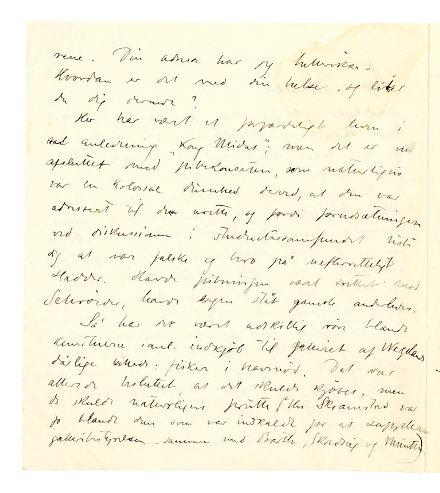 vene. Din adresse har jeg
Hvordan er det med din helse, og liker
du dig dernede?
Her har været et forfærdeligt leven i
anledning "Kong Midas"; men det er nu
afsluttet med pibekoncerten, som naturligvis
var en kolossal dumhed derved, at den var
adressert til den, og fordi forudsætningen
ved diskussionen i studentersamfundet viste
sig at være falske og bero på uefterrettelighed
Hadde. Havde pibningen været rettet mod
Schrøder, havde sagen stået ganske anderledes.
Så har det været adskillig røre blandt
kunstnerne anl. indkjøb til galleriet af Weglands
dårlige billede: fisker i havsnød. Det var
allerede besluttet at det skulde kjøbes, men
de skulde naturligvis prutte først. Skramstad var
jo blandt dem som var indkaldt for at supplere
galleribestyrelsen sammen med Barth, Skredsvig og Munthe)